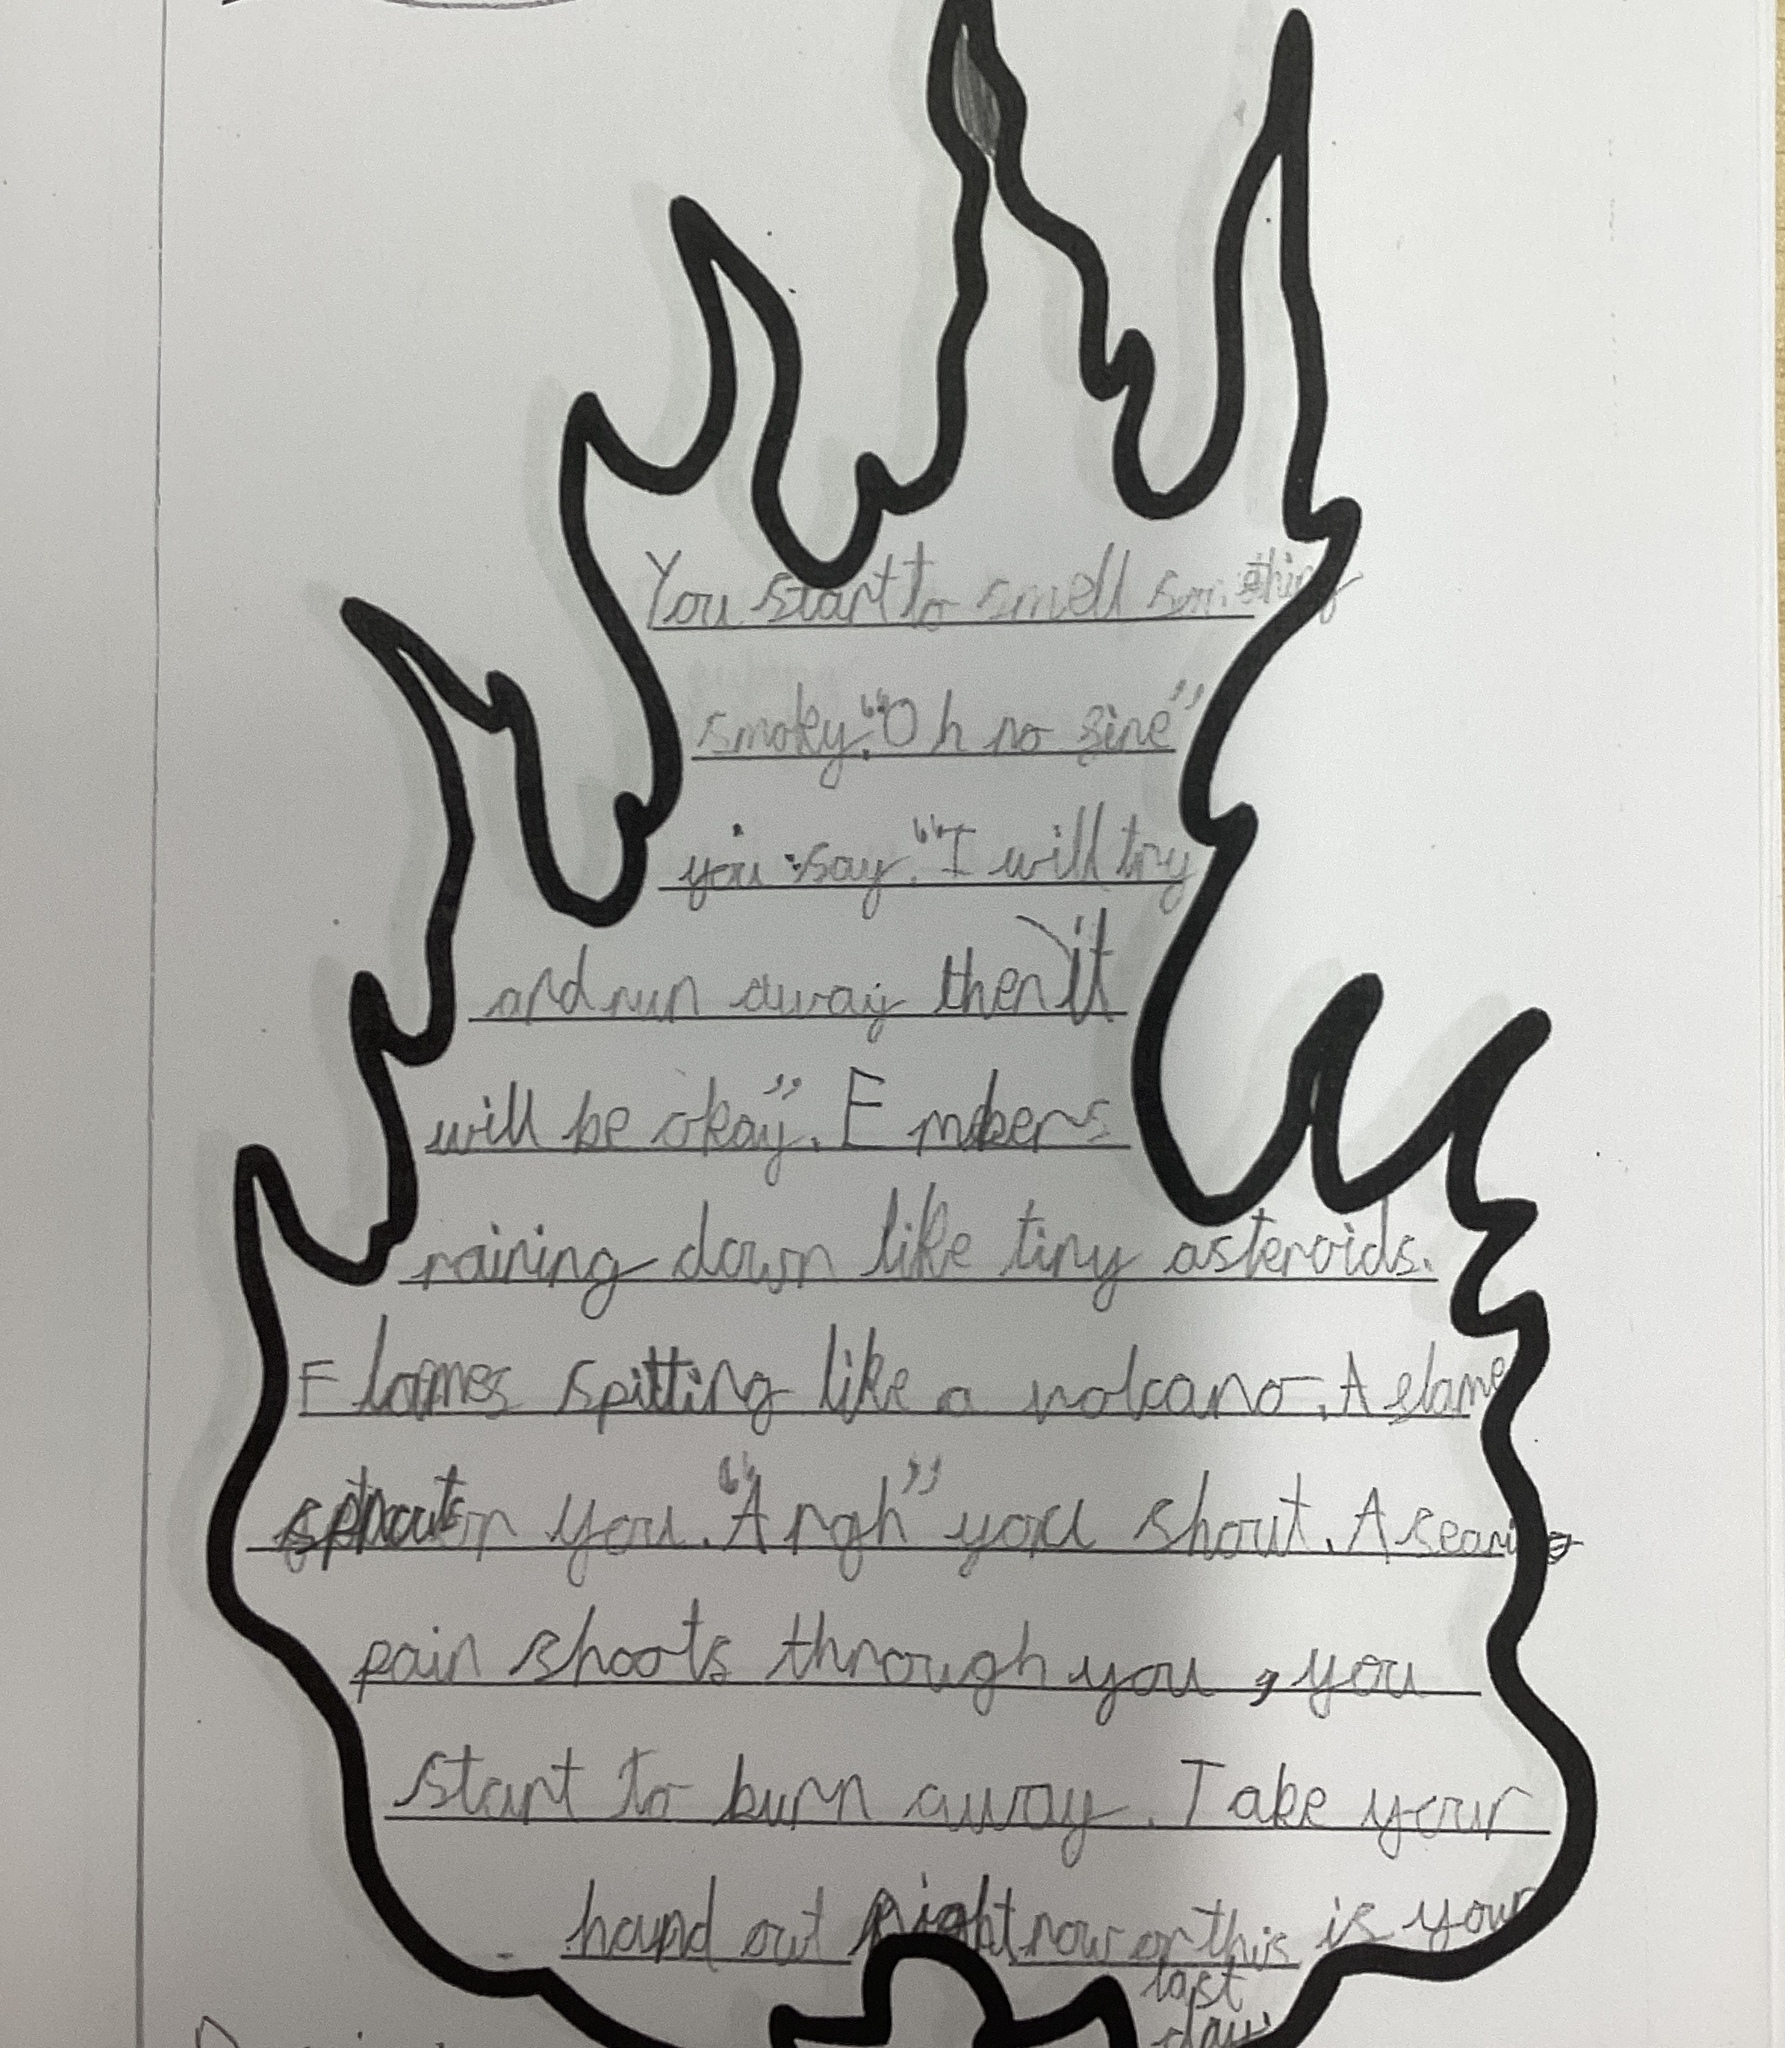 You start to smell something
smoky. "Oh no fire"
you say. "I will try
and run away then it
will be okay". Embers
raining down like tiny asteroids.
Flames spitting like a volcano. A flame
on you. "Argh" you shout. A searing
pain shoots through you, you
start to burn away. Take your
hand out right now or this is your
last
day.